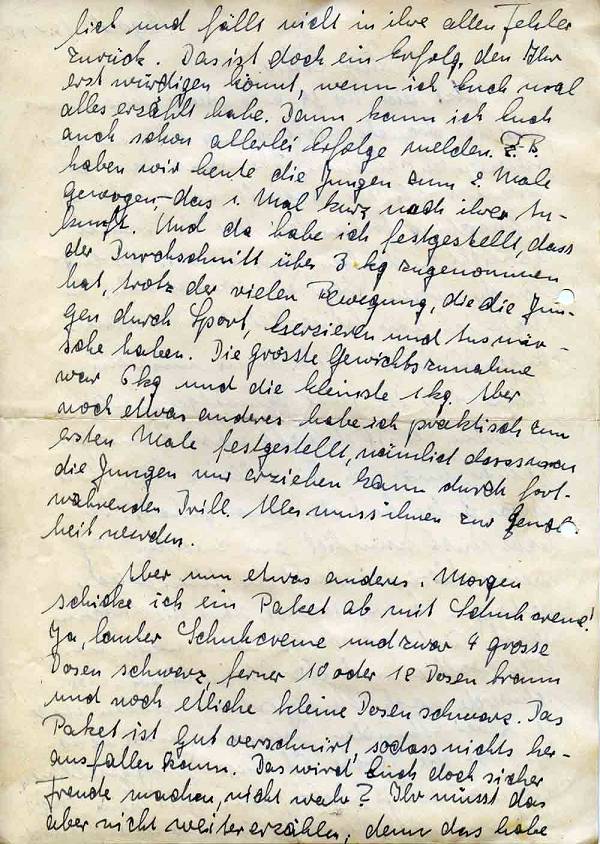 lich und fällt nicht in ihre alten Fehler
zurück. Das ist doch ein Erfolg, den Ihr
erst würdigen könnt, wenn ich Euch mal
alles erzählt habe. Dann kann ich Euch
auch schon allerlei Erfolge melden. Z. B.
haben wir heute die Jungen zum 2. Male
gewogen, das 1. Mal kurz nach ihrer An-
kunft. Und da habe ich festgestellt, dass
der Durchschnitt über 3 kg zugenommen
hat, trotz der vielen Bewegung, die die Jun-
gen durch Sport, Exerzieren und Ausmär-
sche haben. Die grösste Gewichtszunahme
war 6 kg und die kleinste 1 kg. Aber
noch etwas anderes habe ich praktisch zum
ersten Male festgestellt, nämlich dass man
die Jungen nur erziehen kann durch fort-
währenden Drill. Alles muss ihnen zur Gewohn-
heit werden.
Aber nun etwas anderes. Morgen
schicke ich ein Paket ab mit Schuhcreme!
Ja, lauter Schuhcreme und zwar 4 grosse
Dosen schwarz, ferner 10 oder 12 Dosen braun
und noch etliche kleine Dosen schwarz. Das
Paket ist gut verschnürt, sodass nichts her-
ausfallen kann. Das wird Euch doch sicher
Freude machen, nicht wahr? Ihr müsst das
aber nicht weitererzählen, denn das habe